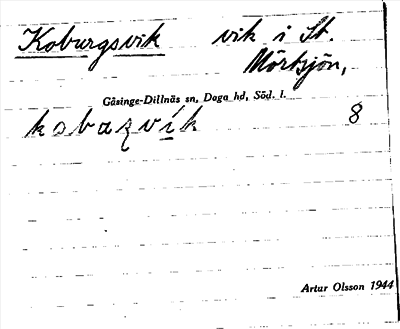 Koburgsvik vik i St.
Mörtsjön,
Gåsinge-Dillnäs sn, Daga hd, Söd. l.
kobaʐvik 8
Artur Olsson 1944